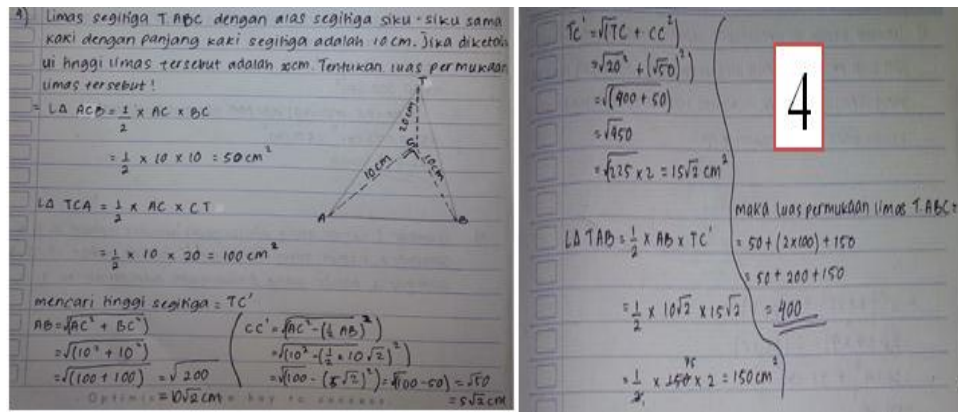 4) Limas segitiga T.ABC dengan alas segitiga siku-siku sama
kaki dengan panjang kaki segitiga adalah 10 cm. Jika diketah
ui tinggi limas tersebut adalah 20cm. Tentukan luas permukaan
limas tersebut!
= LΔ ACB = 1/2 × AC × BC
= 1/2 × 10 × 10 = 50 cm²
LΔ TCA = 1/2 × AC × CT
= 1/2 × 10 × 20 = 100 cm²
T
20 cm
C
10 cm
10 cm
A
B
mencari tinggi segitiga = TC'
AB = √(AC² + BC²)
= √(10² + 10²)
= √(100 + 100) = √200
= 10√2 cm
CC' = √(AC² - (1/2 AB)²)
= √(10² - (1/2 × 10√2)²)
= √(100 - (5√2)²) = √(100 - 50) = √50
= 5√2 cm
TC' = √(TC + CC²)
= √20² + (√50)²)
= √(400 + 50)
= √450
= √225 × 2 = 15√2 cm²
LΔ TAB = 1/2 × AB × TC'
= 1/2 × 10√2 × 15√2
= 1/2 × 150 75 × 2 = 150 cm²
4
maka luas permukaan limas T.ABC =
= 50 + (2×100) + 150
= 50 + 200 + 150
= 400